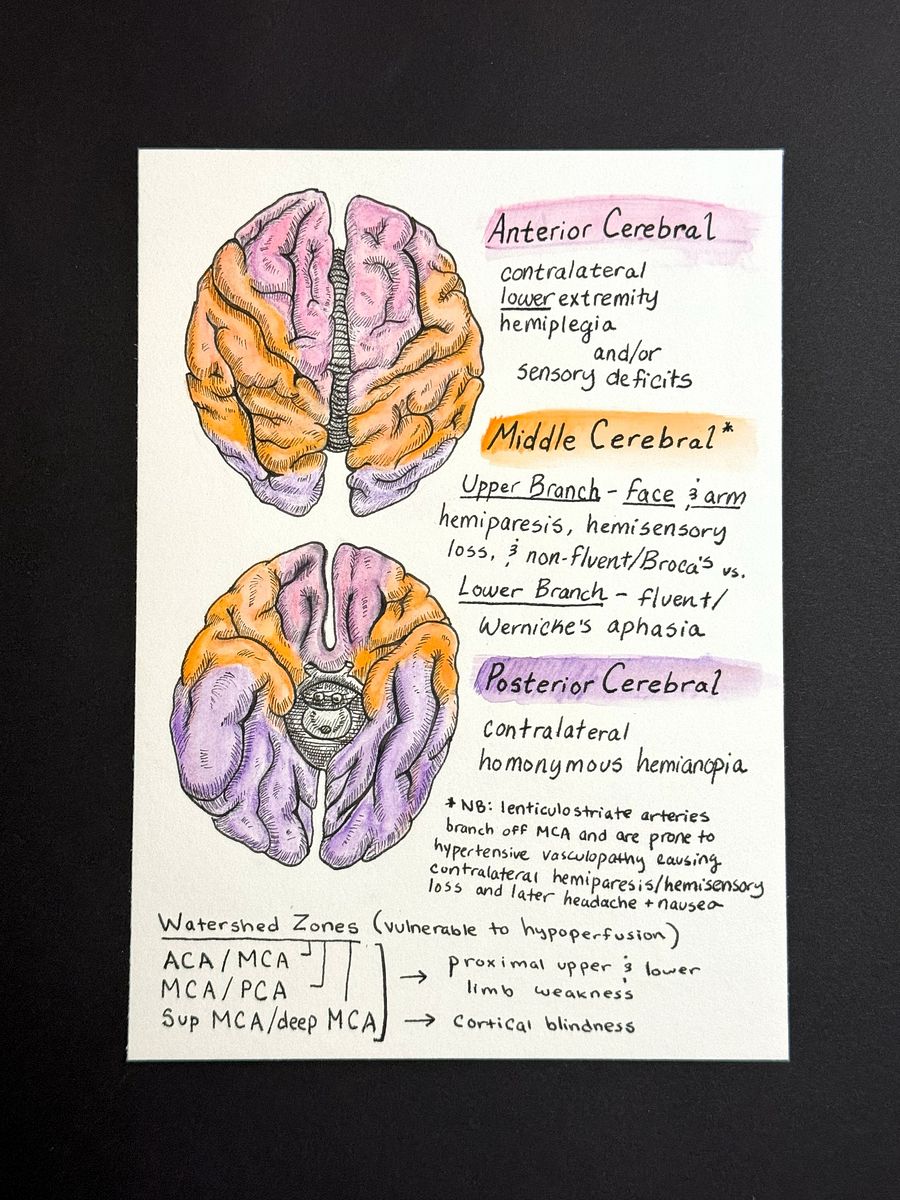 Anterior Cerebral
contralateral
lower extremity
hemiplegia
and/or
sensory deficits
Middle Cerebral*
Upper Branch - face & arm
hemiparesis, hemisensory
loss, & non-fluent/Broca's vs.
Lower Branch - fluent/
Wernicke's aphasia
Posterior Cerebral
contralateral
homonymous hemianopia
*NB: lenticulostriate arteries
branch off MCA and are prone to
hypertensive vasculopathy causing
contralateral hemiparesis/hemisensory
loss and later headache + nausea
Watershed Zones (vulnerable to hypoperfusion)
ACA/MCA
MCA/PCA
Sup MCA/deep MCA
→ proximal upper & lower
limb weakness
→ cortical blindness